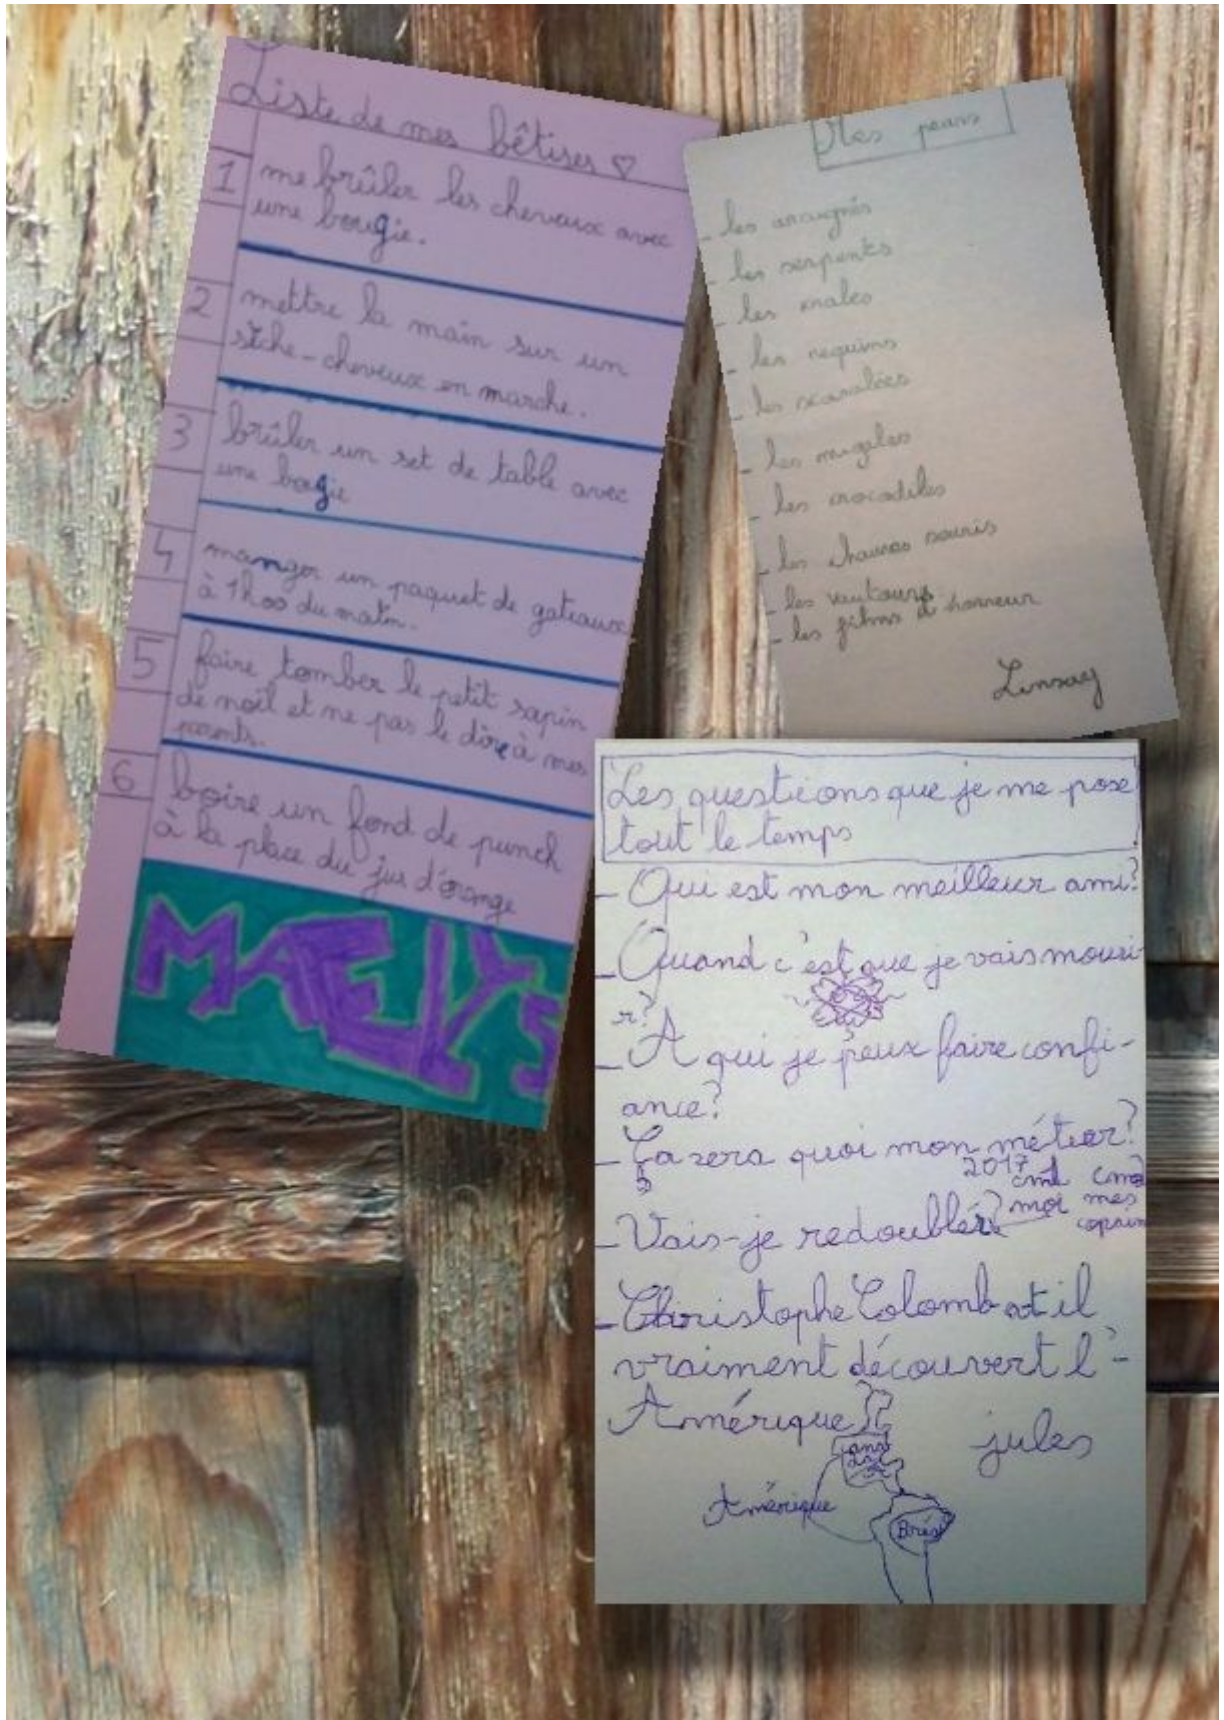 Liste de mes bêtises ♡
1 me brûler les cheveux avec
une bougie.
2 mettre la main sur un
sèche-cheveux en marche.
3 brûler un set de table avec
une bogie
4 manger un paquet de gateaux
à 1h00 du matin.
5 faire tomber le petit sapin
de noël et ne pas le dire à mes
parents.
6 boire un fond de punch
à la place du jus d'orange
MAELYS
Mes peurs
- les araignés
- les serpents
- les
- les requins
- les scarabées
- les migales
- les crocodiles
- les chauves souris
- les vautours
- les films d'horreur
Linsay
Les questions que je me pose
tout le temps
- Qui est mon meilleur ami?
- Quand c'est que je vais mouri
r?
- A qui je peux faire confi-
ance?
- Ça sera quoi mon métier?
2017
cm1 cm2
- Vais-je redoubler? moi mes
copain
- Christophe Colomb at il
vraiment découvert l'-
Amérique?
jules
Amérique
Brésil